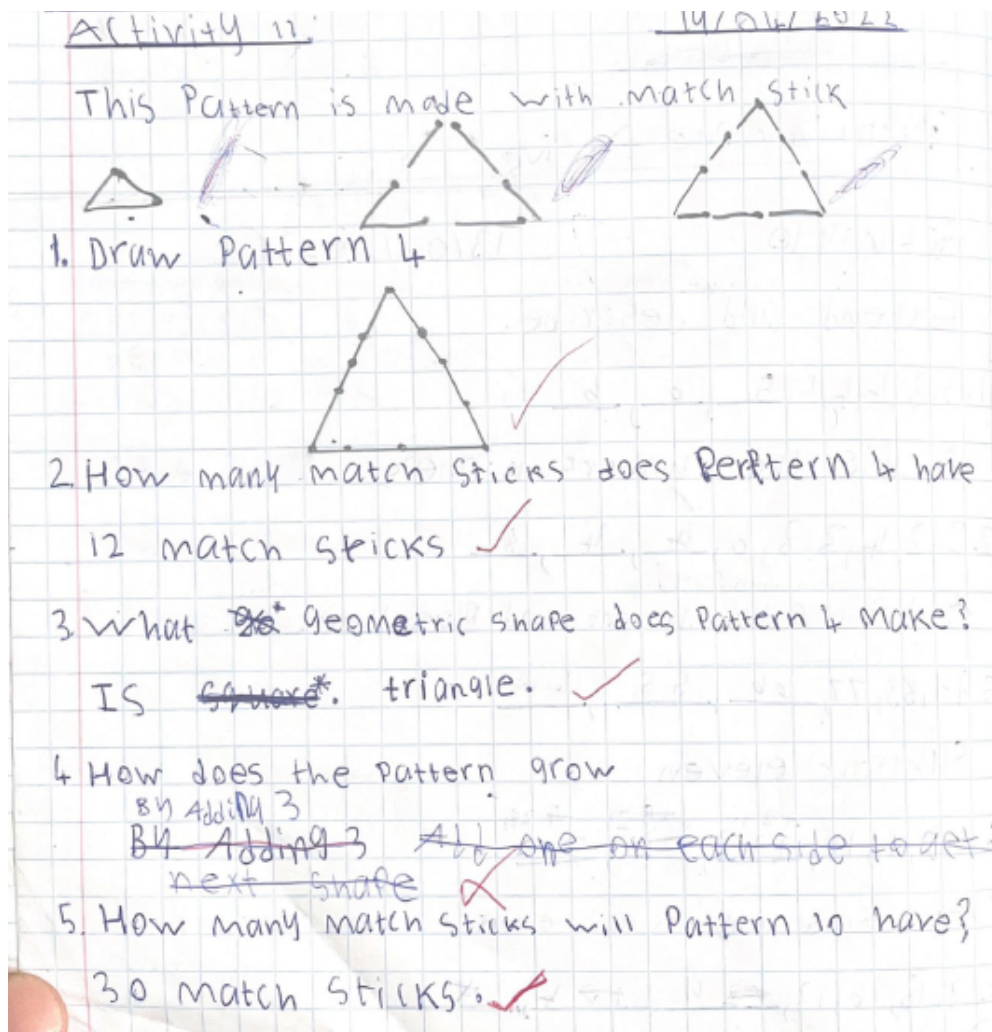 Activity 11.
14/04/2022
This Pattern is made with match stick
1. Draw Pattern 4
2. How many match sticks does Perftern 4 have
12 match sticks
3 What geometric shape does Pattern 4 make?
IS square*. triangle.
4 How does the pattern grow
BY Adding 3
By Adding 3 Add one on each side to get
next shape
5. How many match sticks will Pattern 10 have?
30 match sticks.